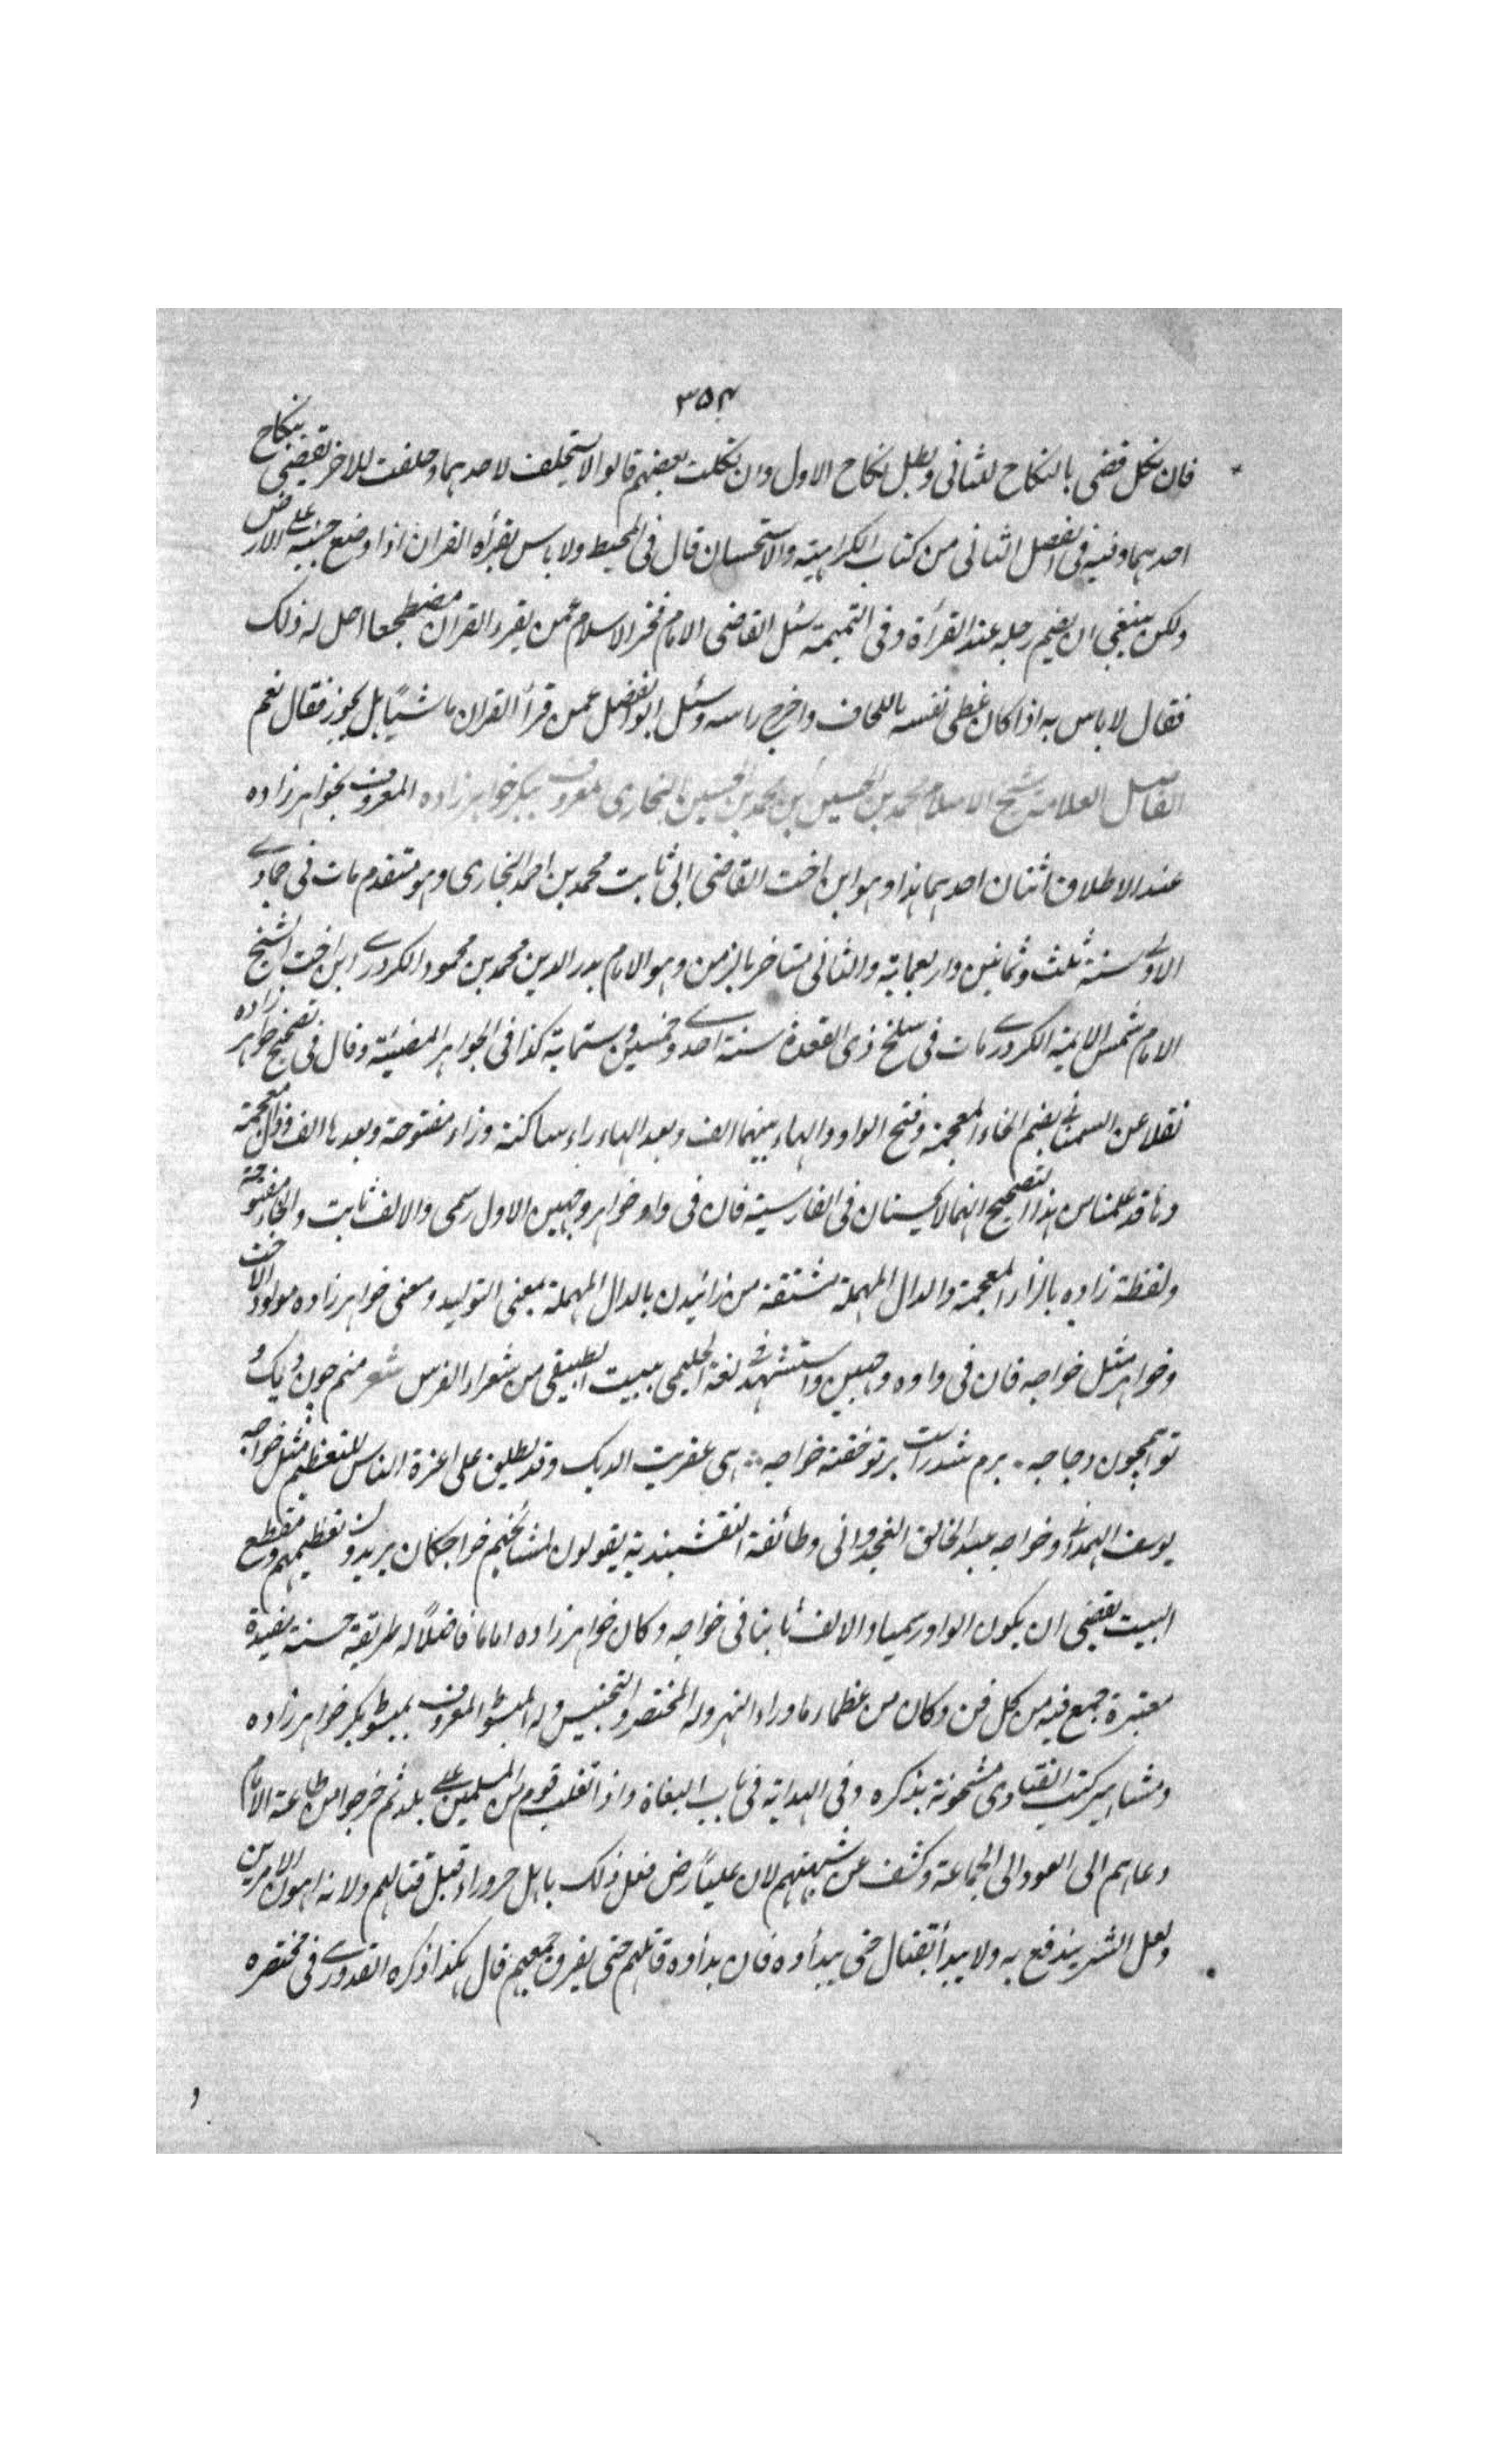 ٣٥٤
فان نكل قضى بالنكاح للثانى وبطل نكاح الاول وان نكلت بعضهم قالوا لا يستحلف لاحدهما وحلفت للاخر يقضى بنكاح
احدهما وفيه فى الفصل الثانى من كتاب الكراهية والاستحسان قال فى المحيط ولا باس بقراءة القران اذا وضع جنبه على الارض
ولكن ينبغى ان يضم رجله عند القرأة وفى التتمة سئل القاضى الامام فخر الاسلام عمن يقرء القران مضطجعا احل له ذلك
فقال لا باس به اذا كان غطى نفسه باللحاف واخرج راسه وسئل ابو الفضل عمن قرأ القران ماشيًا هل يجوز فقال نعم
الفاضل العلامة شيخ الاسلام محمد بن الحسين بن محمد بن الحسين البخارى المعروف ببكر خواهرزاده المعروف بخواهرزاده
عند الاطلاق اثنان احدهما هذا وهو ابن اخت القاضى ابى ثابت محمد بن احمد البخارى وهو متقدم مات فى جمادى
الاولى سنة ثلث وثمانين واربعماية والثانى متاخر بالزمن وهو الامام بدر الدين محمد بن محمود الكردرى ابن اخت الشيخ
الامام شمس الايمة الكردرى مات فى سلخ ذى القعدة سنة احدى وخمسين وستماية كذا فى الجواهر المضيئة وقال فى تصحيح خواهر زاده
نقلا عن السمعانى بضم الخاء المعجمة وفتح الواو والهاء بينهما الف وبعد الهاء راء ساكنة وزاء مفتوحة وبعدها الف وذال معجمة
وها قد علمنا من هذا التصحيح انهما لا يحسنان فى الفارسية فان فى واو خواهر وجهين الاول رسمى والالف ثابت والخاء مفتوحة
ولفظة زاده بالزاء المعجمة والدال المهملة مشتقة من زائيدن بالدال المهملة بمعنى التوليد ومعنى خواهرزاده مولود الاخت
وخواهر مثل خواجه فان فى واوه وجهين واستشهد فى لغة الحليمى ببيت لطبيقى من شعراء الفرس شعر منم چون ديك و
تو همچون دجاجه ٭ برم شدراست برتو خفته خواجه ٭ اى عفريت الديك وقد يطلق على اعزة الناس للتعظيم مثل خواجه
يوسف الهمدانى وخواجه عبد الخالق الغجدوانى وطائفة النقشبندية يقولون لمشائخهم خواجكان يريدون تعظيمهم ومقطع
البيت يقتضى ان يكون الواو رسميا والالف ثابتا فى خواجه وكان خواهرزاده اماما فاضلًا له طريقة حسنة مفيدة
معتبرة جمع فيه من كل فن وكان من عظماء ما وراء النهر وله المختصر والتجنيس وله المبسوط المعروف بمبسوط بكر خواهرزاده
ومشاهير كتب الفتاوى مشحونة بذكره وفى الهداية فى باب البغاة واذا تغلب قوم من المسلمين على بلد ثم خرجوا من طاعة الامام
دعاهم الى العود الى الجماعة وكشف عن شبهتهم لان عليًا رض فعل ذلك باهل حروراء قبل قتالهم ولانه اهون الامرين
ولعل الشر يندفع به ولا يبدأ بقتال حتى يبدأوه فان بدأوه قاتلهم حتى يفرق جمعهم قال هكذا ذكره القدورى فى مختصره
و